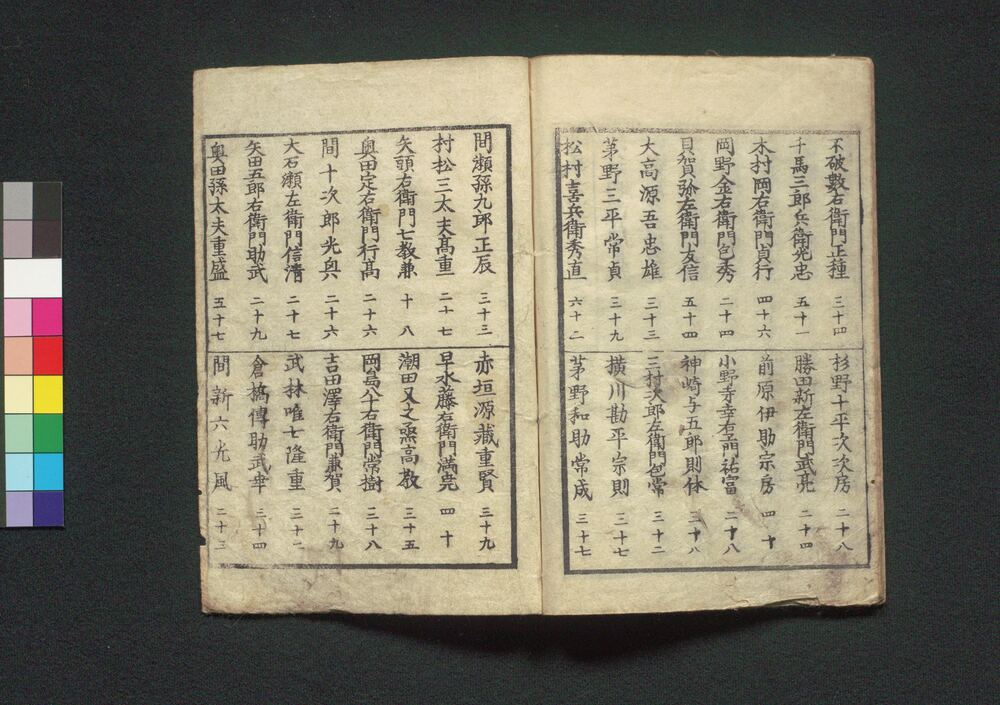 不破數右衛門正種 三十四
千馬三郎兵衛光忠 五十一
木村岡右衛門貞行 四十六
岡野金右衛門包秀 二十四
貝賀弥左衛門友信 五十四
大高源吾忠雄 三十三
茅野三平常貞 三十九
松村喜兵衛秀直 六十二
杉野十平次次房 二十八
勝田新左衛門武尭 二十四
前原伊助宗房 四十
小野寺幸右衛門祐冨 二十八
神崎与五郎則休 三十八
三村次郎左衛門包常 三十二
横川勘平宗則 三十七
茅野和助常成 三十七
間瀬孫九郎正辰 三十三
村松三太夫髙重 二十七
矢頭右衛門七教兼 十八
奥田定右衛門行髙 二十六
間十次郎光興 二十六
大石瀬左衛門信清 二十七
矢田五郎右衛門助武 二十九
奥田孫太夫重盛 五十七
赤垣源蔵重賢 三十九
早水藤右衛門満尭 四十
潮田又之烝高教 三十五
岡島八十右衛門常樹 三十八
吉田澤右衛門兼賀 二十九
武林唯七隆重 三十二
倉橋傳助武幸 三十四
間新六光風 二十三